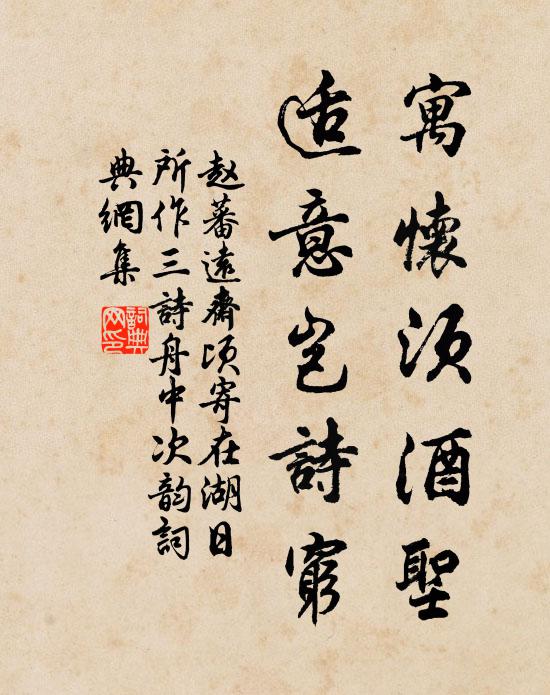 寓懷須酒聖
适意岂詩窮
赵蕃遠齋頃寄在湖日
所作三詩舟中次韵詞
典網集
詞典
网印